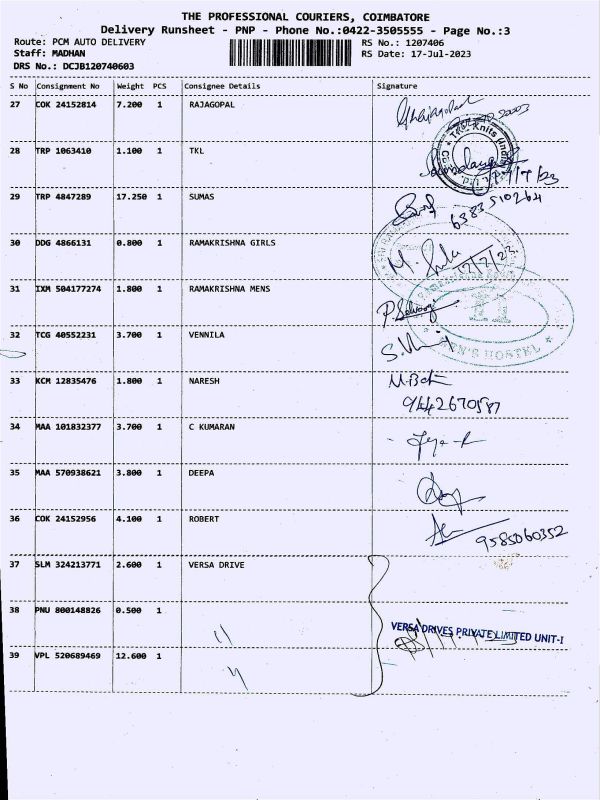 THE PROFESSIONAL COURIERS, COIMBATORE
Delivery Runsheet - PNP - Phone No.:0422-3505555 - Page No.:3
Route: PCM AUTO DELIVERY
RS No.: 1207406
Staff: MADHAN
RS Date: 17-Jul-2023
DRS No.: DCJB120740603
S No Consignment No Weight PCS Consignee Details Signature
27 COK 24152814 7.200 1 RAJAGOPAL
28 TRP 1063410 1.100 1 TKL
29 TRP 4847289 17.250 1 SUMAS
6383510264
30 DDG 4866131 0.800 1 RAMAKRISHNA GIRLS
17/7/23
31 IXM 504177274 1.800 1 RAMAKRISHNA MENS
32 TCG 40552231 3.700 1 VENNILA
MEN'S HOSTEL
33 KCM 12835476 1.800 1 NARESH
9442670587
34 MAA 101832377 3.700 1 C KUMARAN
35 MAA 570938621 3.800 1 DEEPA
36 COK 24152956 4.100 1 ROBERT
9585060352
37 SLM 324213771 2.600 1 VERSA DRIVE
38 PNU 800148826 0.500 1
VERSA DRIVES PRIVATE LIMITED UNIT-I
39 VPL 520689469 12.600 1